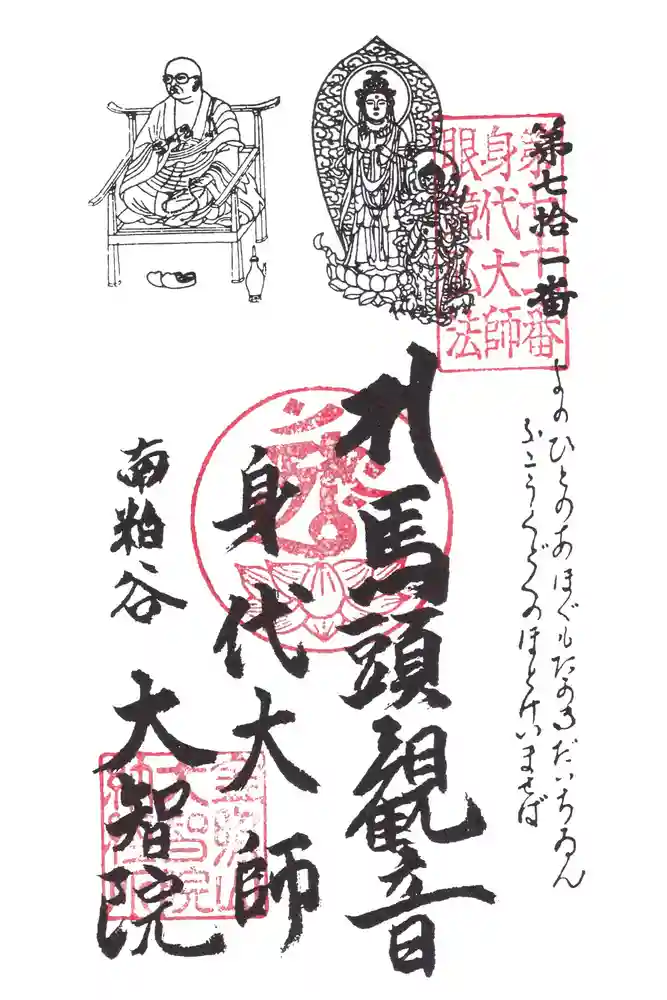 第七拾一番
第七十一番
身代大師
眼鏡弘法
よのひとのあほぐもたかきだいちゐん
ふこうくどくのほとけいませば
馬頭観音
身代大師
南粕谷
大智院
金照山
大智院
納経印